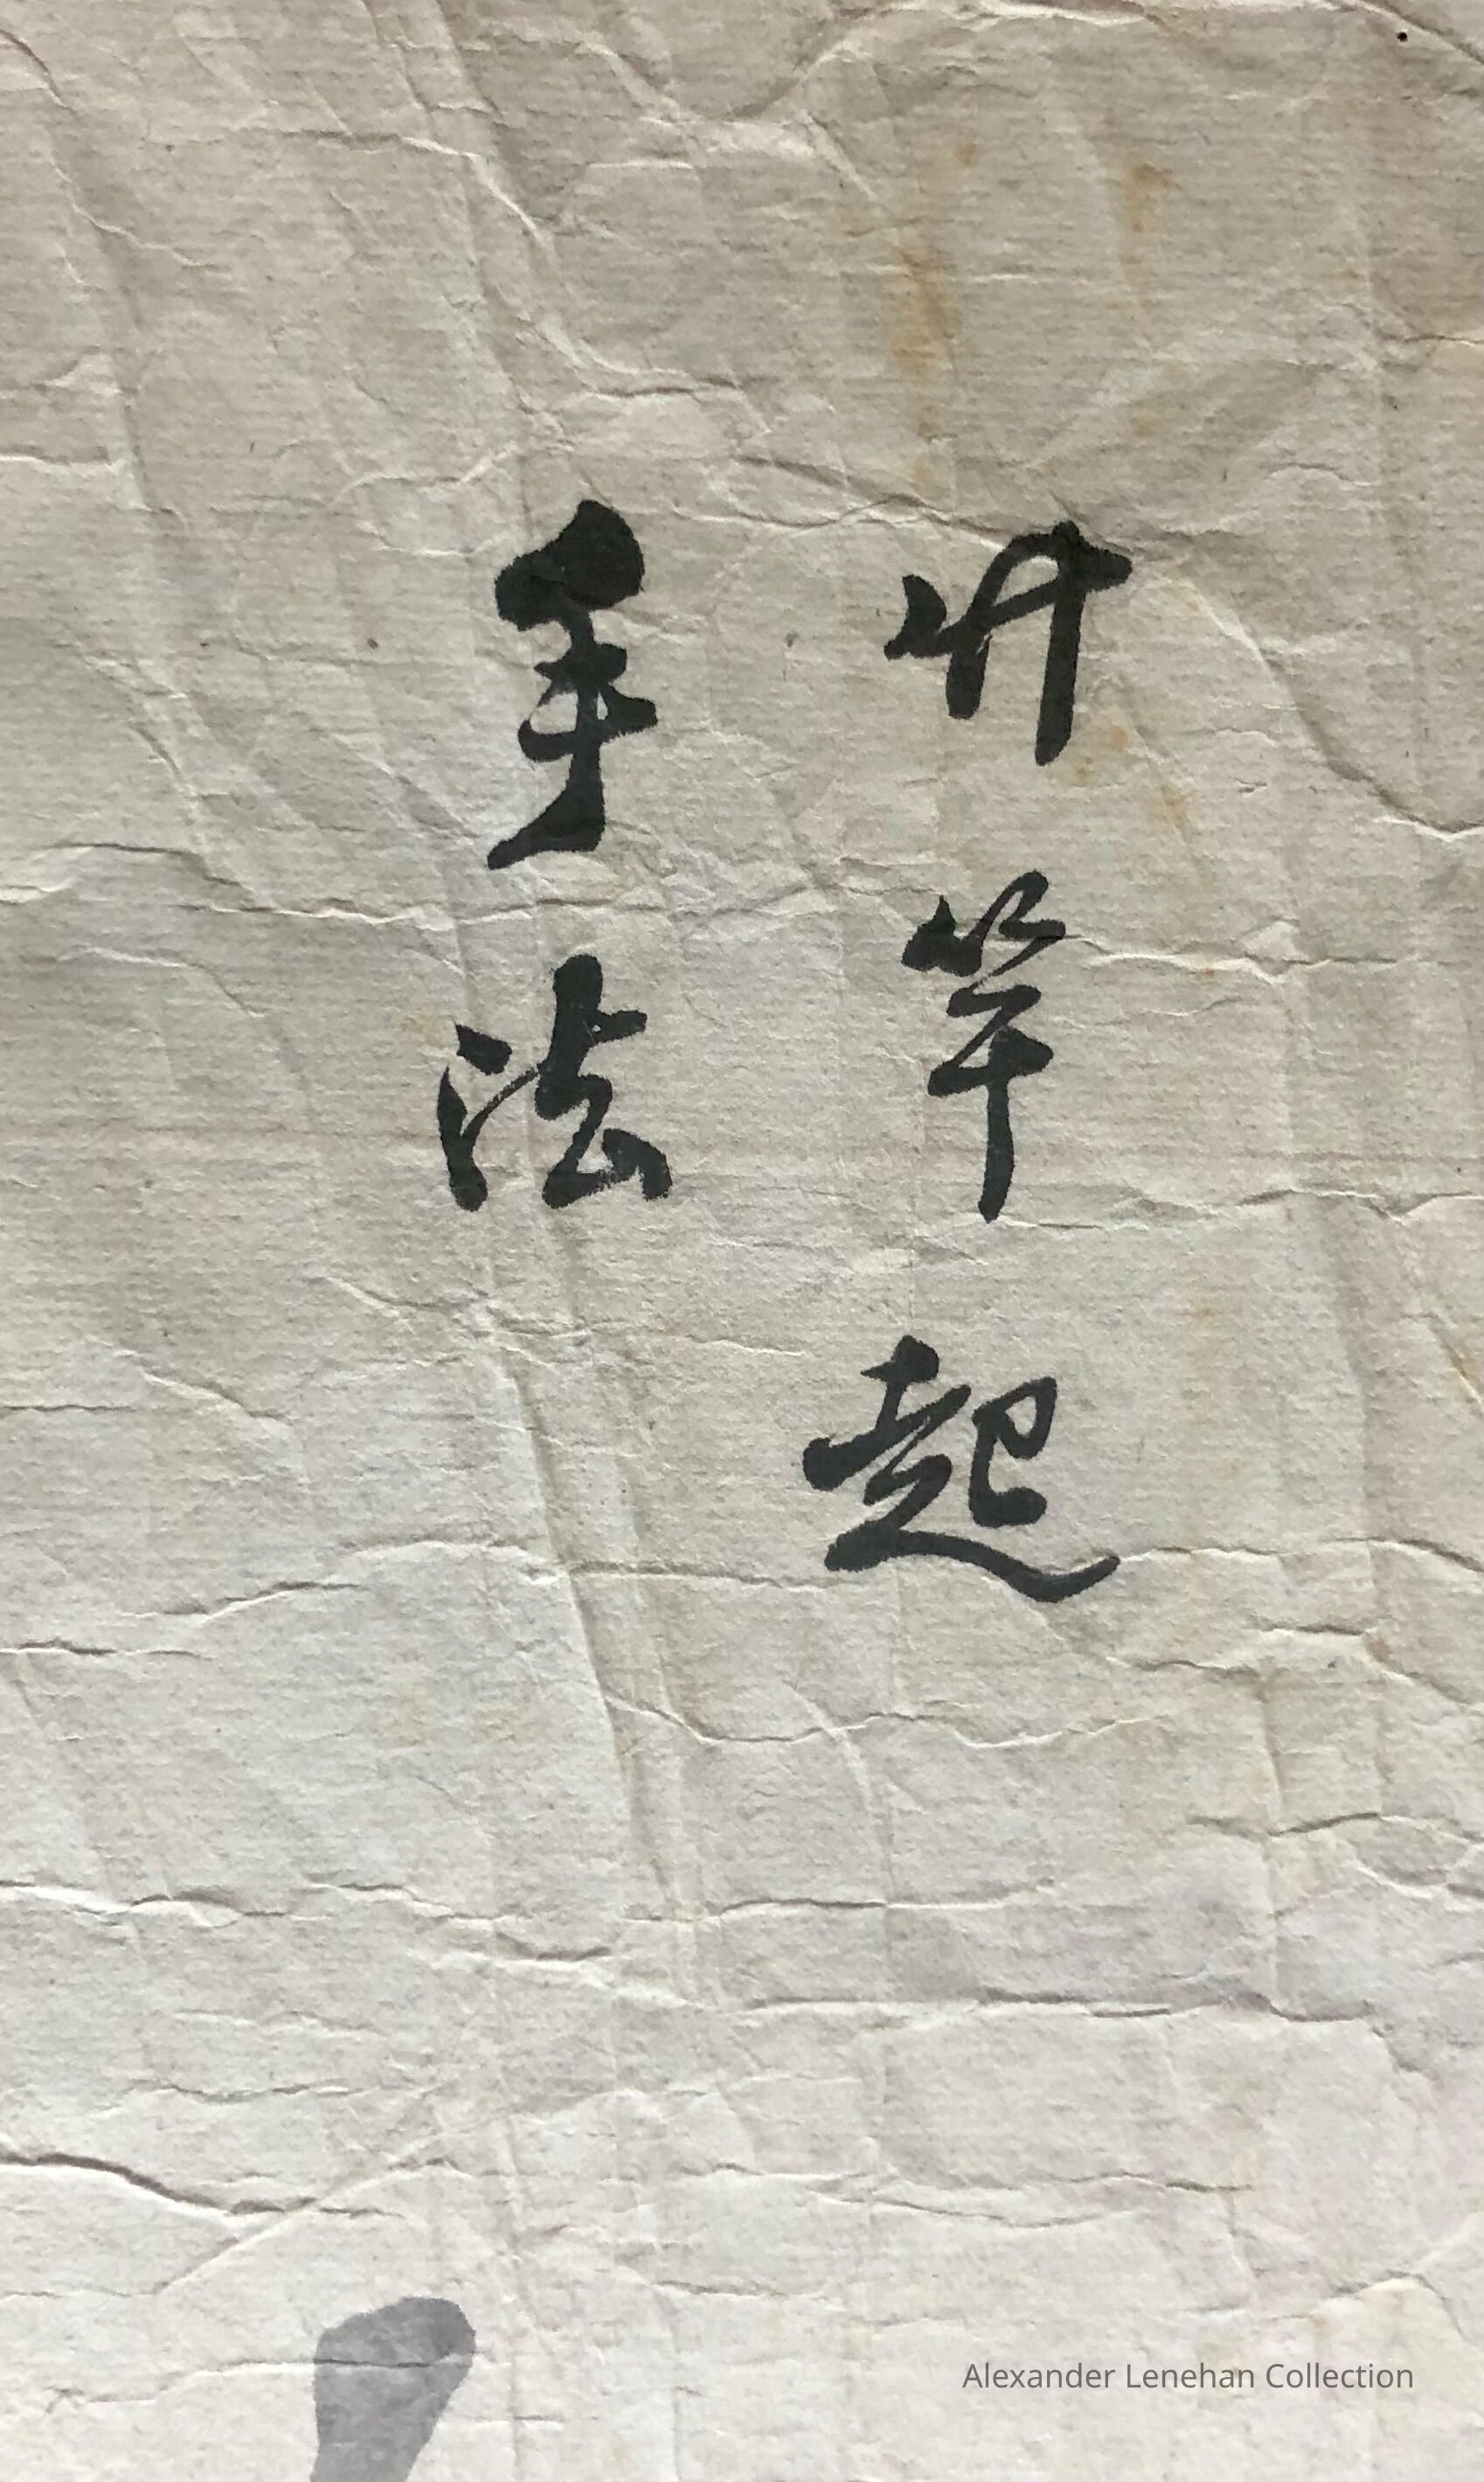 竹竿起
手法
Alexander Lenehan Collection